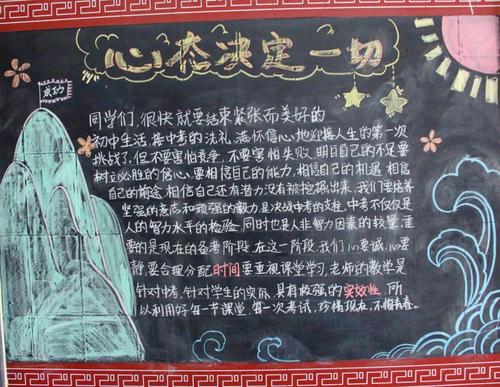 心态决定一切
成功
同学们,很快就要结束紧张而美好的
初中生活,接中考的洗礼,满怀信心地迎接人生的第一次
挑战了,但不要害怕竞争,不要害怕失败,明目自己的不足要
树立必胜的信心,要相信自己的能力,相信自己的机遇,相信
自己的前途,相信自己还有潜力没有被挖掘出来,我们要培养
坚强的意志和顽强的毅力,是决战中考的支柱,中考不仅仅是
人的智力水平的检验,同时也是人非智力因素的较量,重
要的是现在的备考阶段,在这一阶段,我们心要诚,心要
静,要合理分配时间要重视课堂学习,老师的教学是
针对中考,针对学生的实际,具有较强的实效性,所
以利用好每一节课堂,每一次考试,珍惜现在,不悔青春。